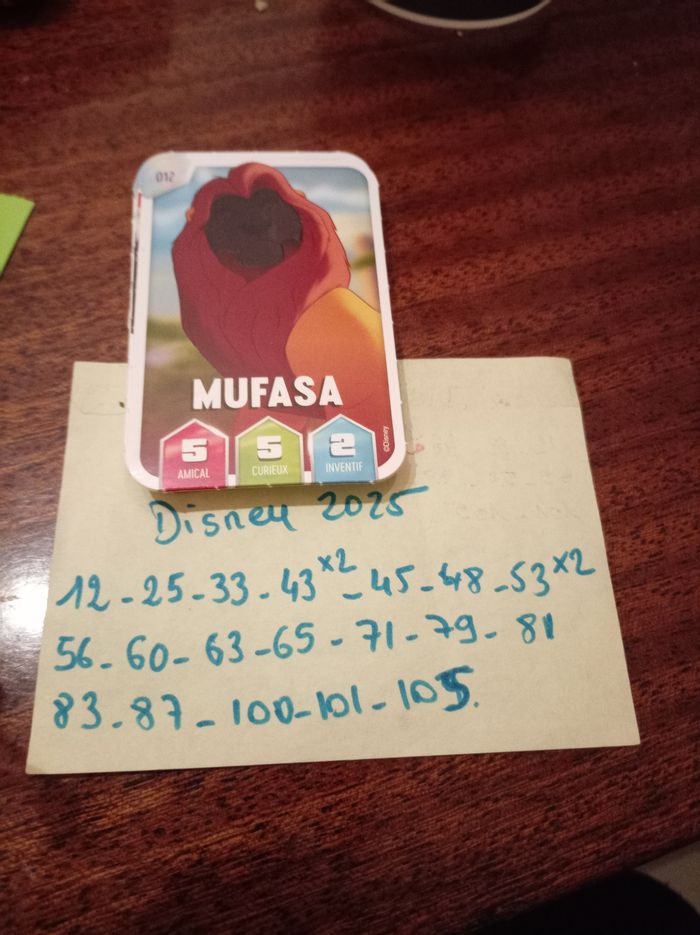 012
MUFASA
5 5 2
AMICAL CURIEUX INVENTIF
©Disney
Disney 2025
12 - 25 - 33 - 43 x2 - 45 - 48 - 53 x2
56 - 60 - 63 - 65 - 71 - 79 - 81
83 - 87 - 100 - 101 - 105.